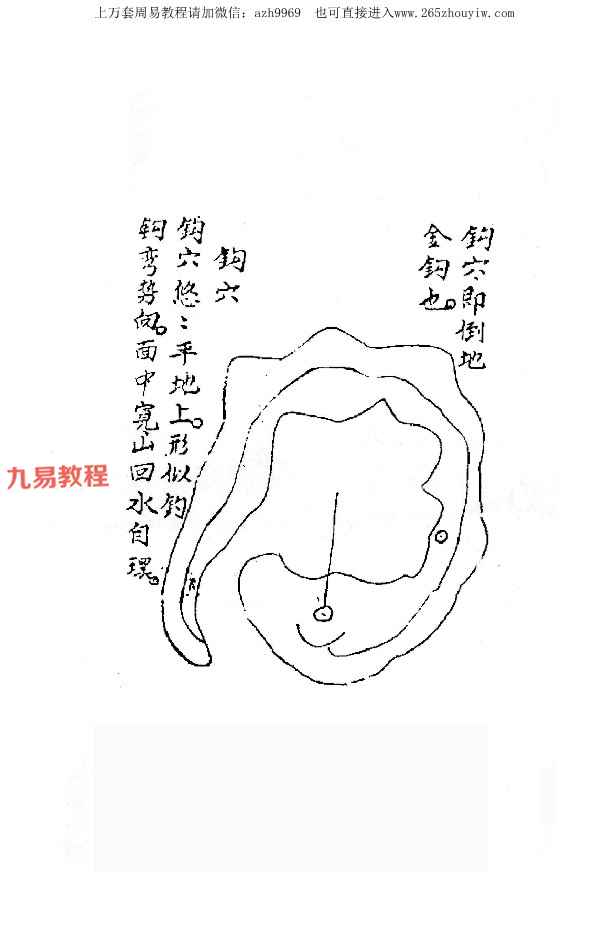 上万套周易教程请加微信：azh9969　也可直接进入www.265zhouyiw.com
鈎穴即倒地
金鈎也。
鈎穴
鈎穴悠〻平地上。形似釣
鈎弯势向。面中寛山回水自
環。
九易教程